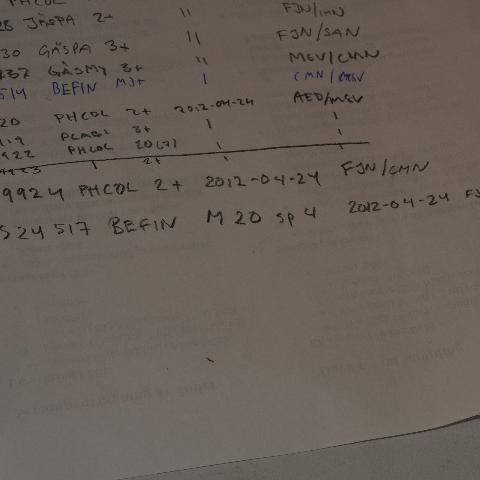 PHCOL
28 JÄSPA 2+ " FJN/IHN
30 GÄSPA 3+ " FJN/SAN
737 GÄSMY 3+ " MGV/CMN
514 BEFIN MJ+ 1 CMN/MGV
20 PHCOL 2+ 2012-04-24 AED/MGV
919 3+ 1 1
922 PHCOL 20(7) 1 1
1 2+ 1 1
9924 PHCOL 2+ 2012-04-24 FJN/CMN
S24 517 BEFIN M 20 SP 4 2012-04-24 FJ